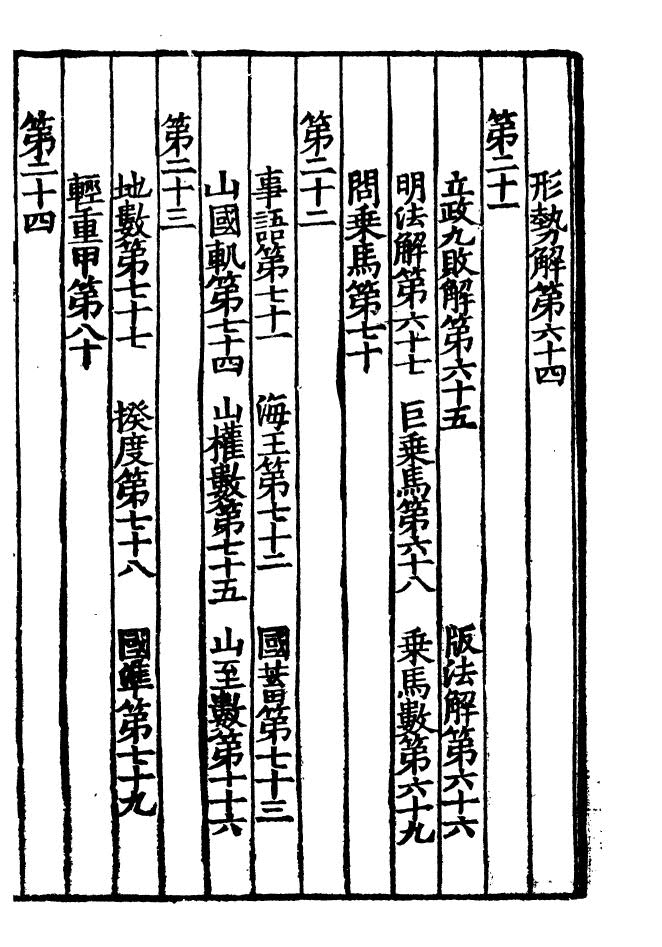 形勢解第六十四
第二十一
立政九敗解第六十五 版法解第六十六
明法解第六十七 巨乗馬第六十八 乗馬數第六十九
問乗馬第七十
第二十二
事語第七十一 海王第七十二 國蓄第七十三
山國軌第七十四 山權數第七十五 山至數第十十六
第二十三
地數第七十七 揆度第七十八 國準第七十九
輕重甲第八十
第二十四